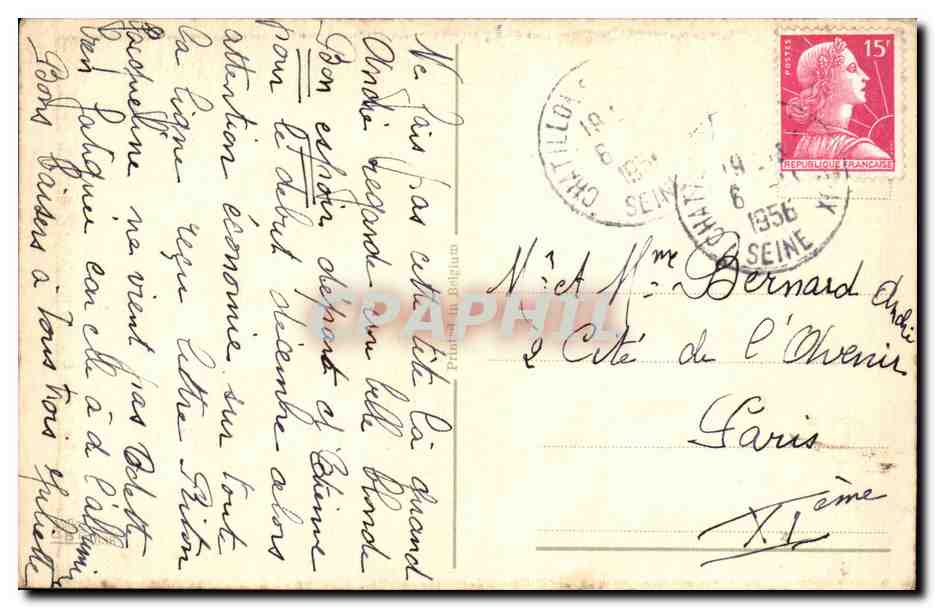 Ne fais pas cette tête là quand
André regarde une belle blonde
Bon espoir départ d'Etienne
pour le début décembre alors
attention économie sur toute
la ligne reçu lettre
Jacqueline ne vient pas Odette
très fatiguée car elle à de l'
Bons baisers à tous trois Juliette
Printed in Belgium
POSTES
15F
REPUBLIQUE FRANÇAISE
CHATILLON
19
6
195
SEINE
CHAT
19
6
1956
SEINE
Mr et Mme Bernard André
2 Cité de l'Avenir
Paris
XIème
CPAPHIL